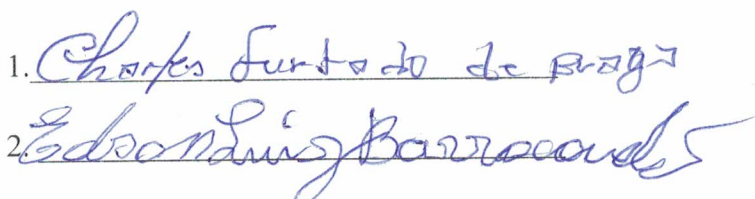 1. Charles Furtado de Braga
2. Edson Luiz